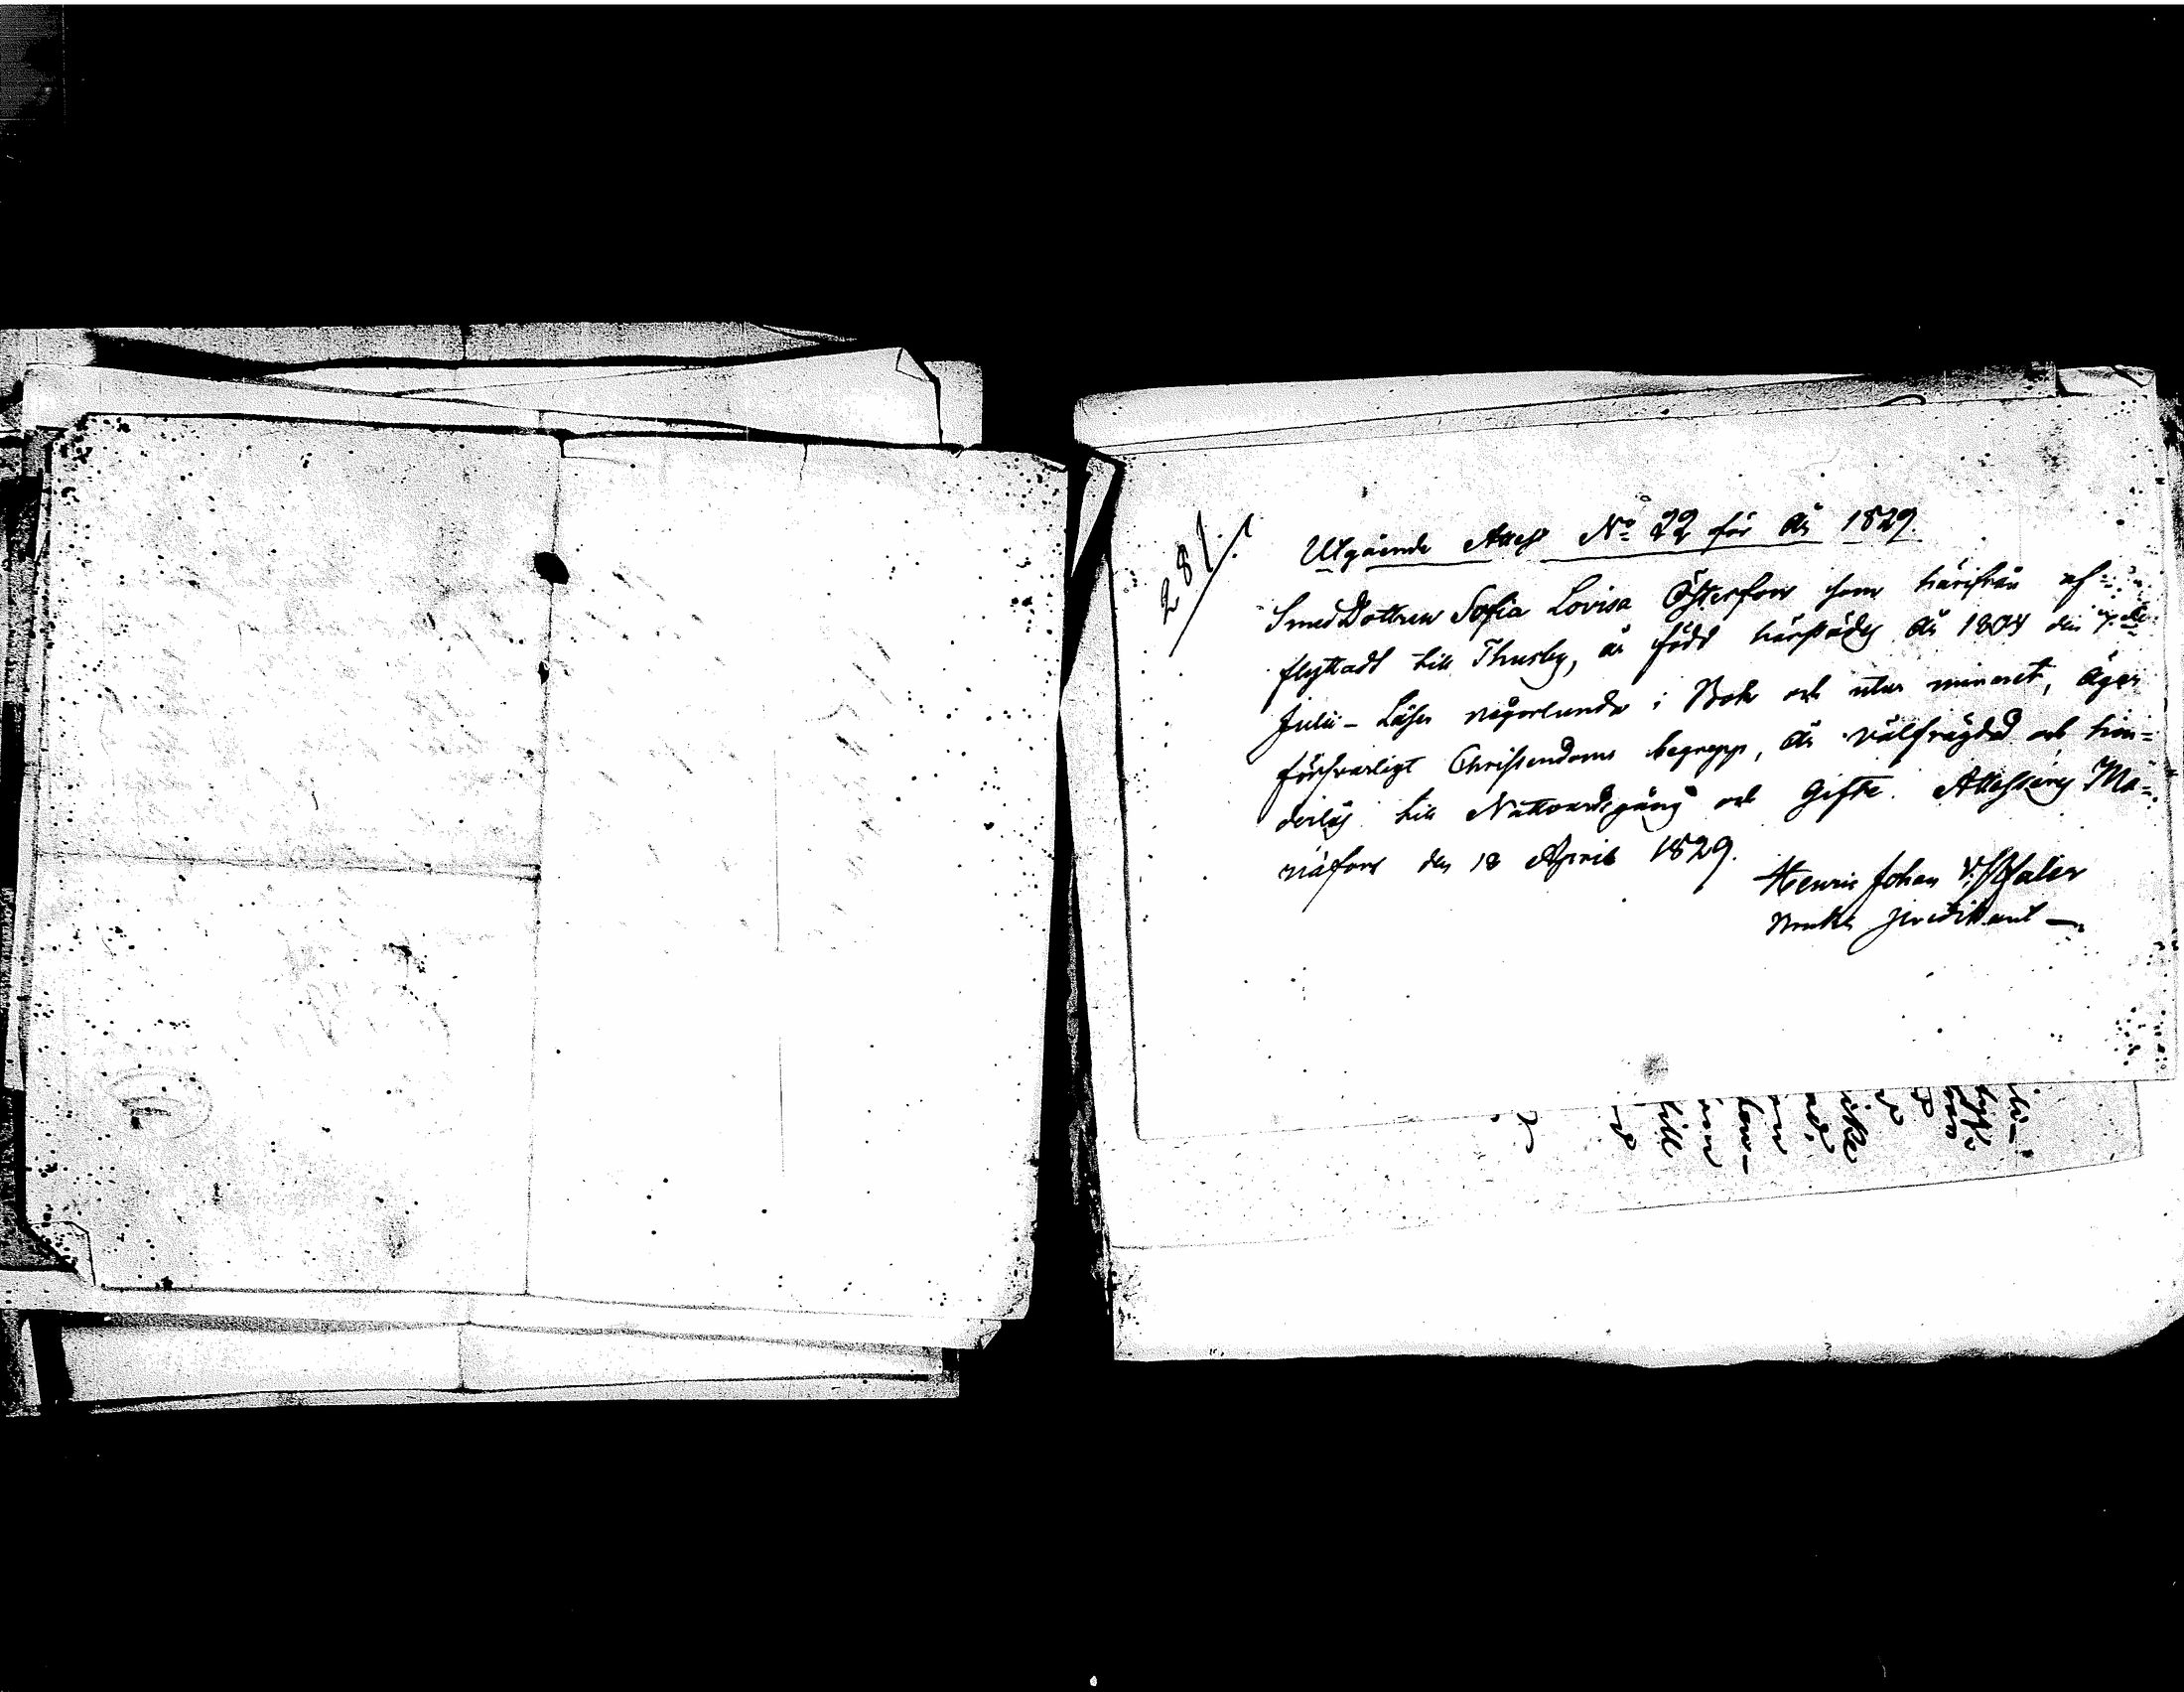 281./.
Utgående Attest No 22 för År 1829.
SmedDottren Sofia Lovisa Österfors som härifrån af-
flyttadt till Thusby, är född härstädes År 1804 den 7de
Julii - Läser någorlunda i Bok och utur minnet, äger
försvarligt Christendoms begrepp, är välfrägdad och hin-
derlös till Nattvardsgång och Gifte. Attesteras Ma-
riæfors den 18 April 1829.
Henric Johan
Bruks Predikant -
till